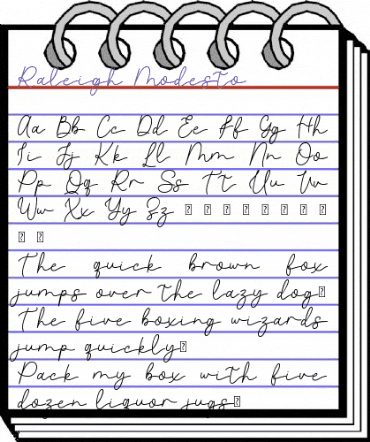 Raleigh Modesto
Aa Bb Cc Dd Ee Ff Gg Hh
Ii Jj Kk Ll Mm Nn Oo
Pp Qq Rr Ss Tt Uu Vv
Ww Xx Yy Zz
The quick brown fox
jumps over the lazy dog
The five boxing wizards
jump quickly
Pack my box with five
dozen liquor jugs